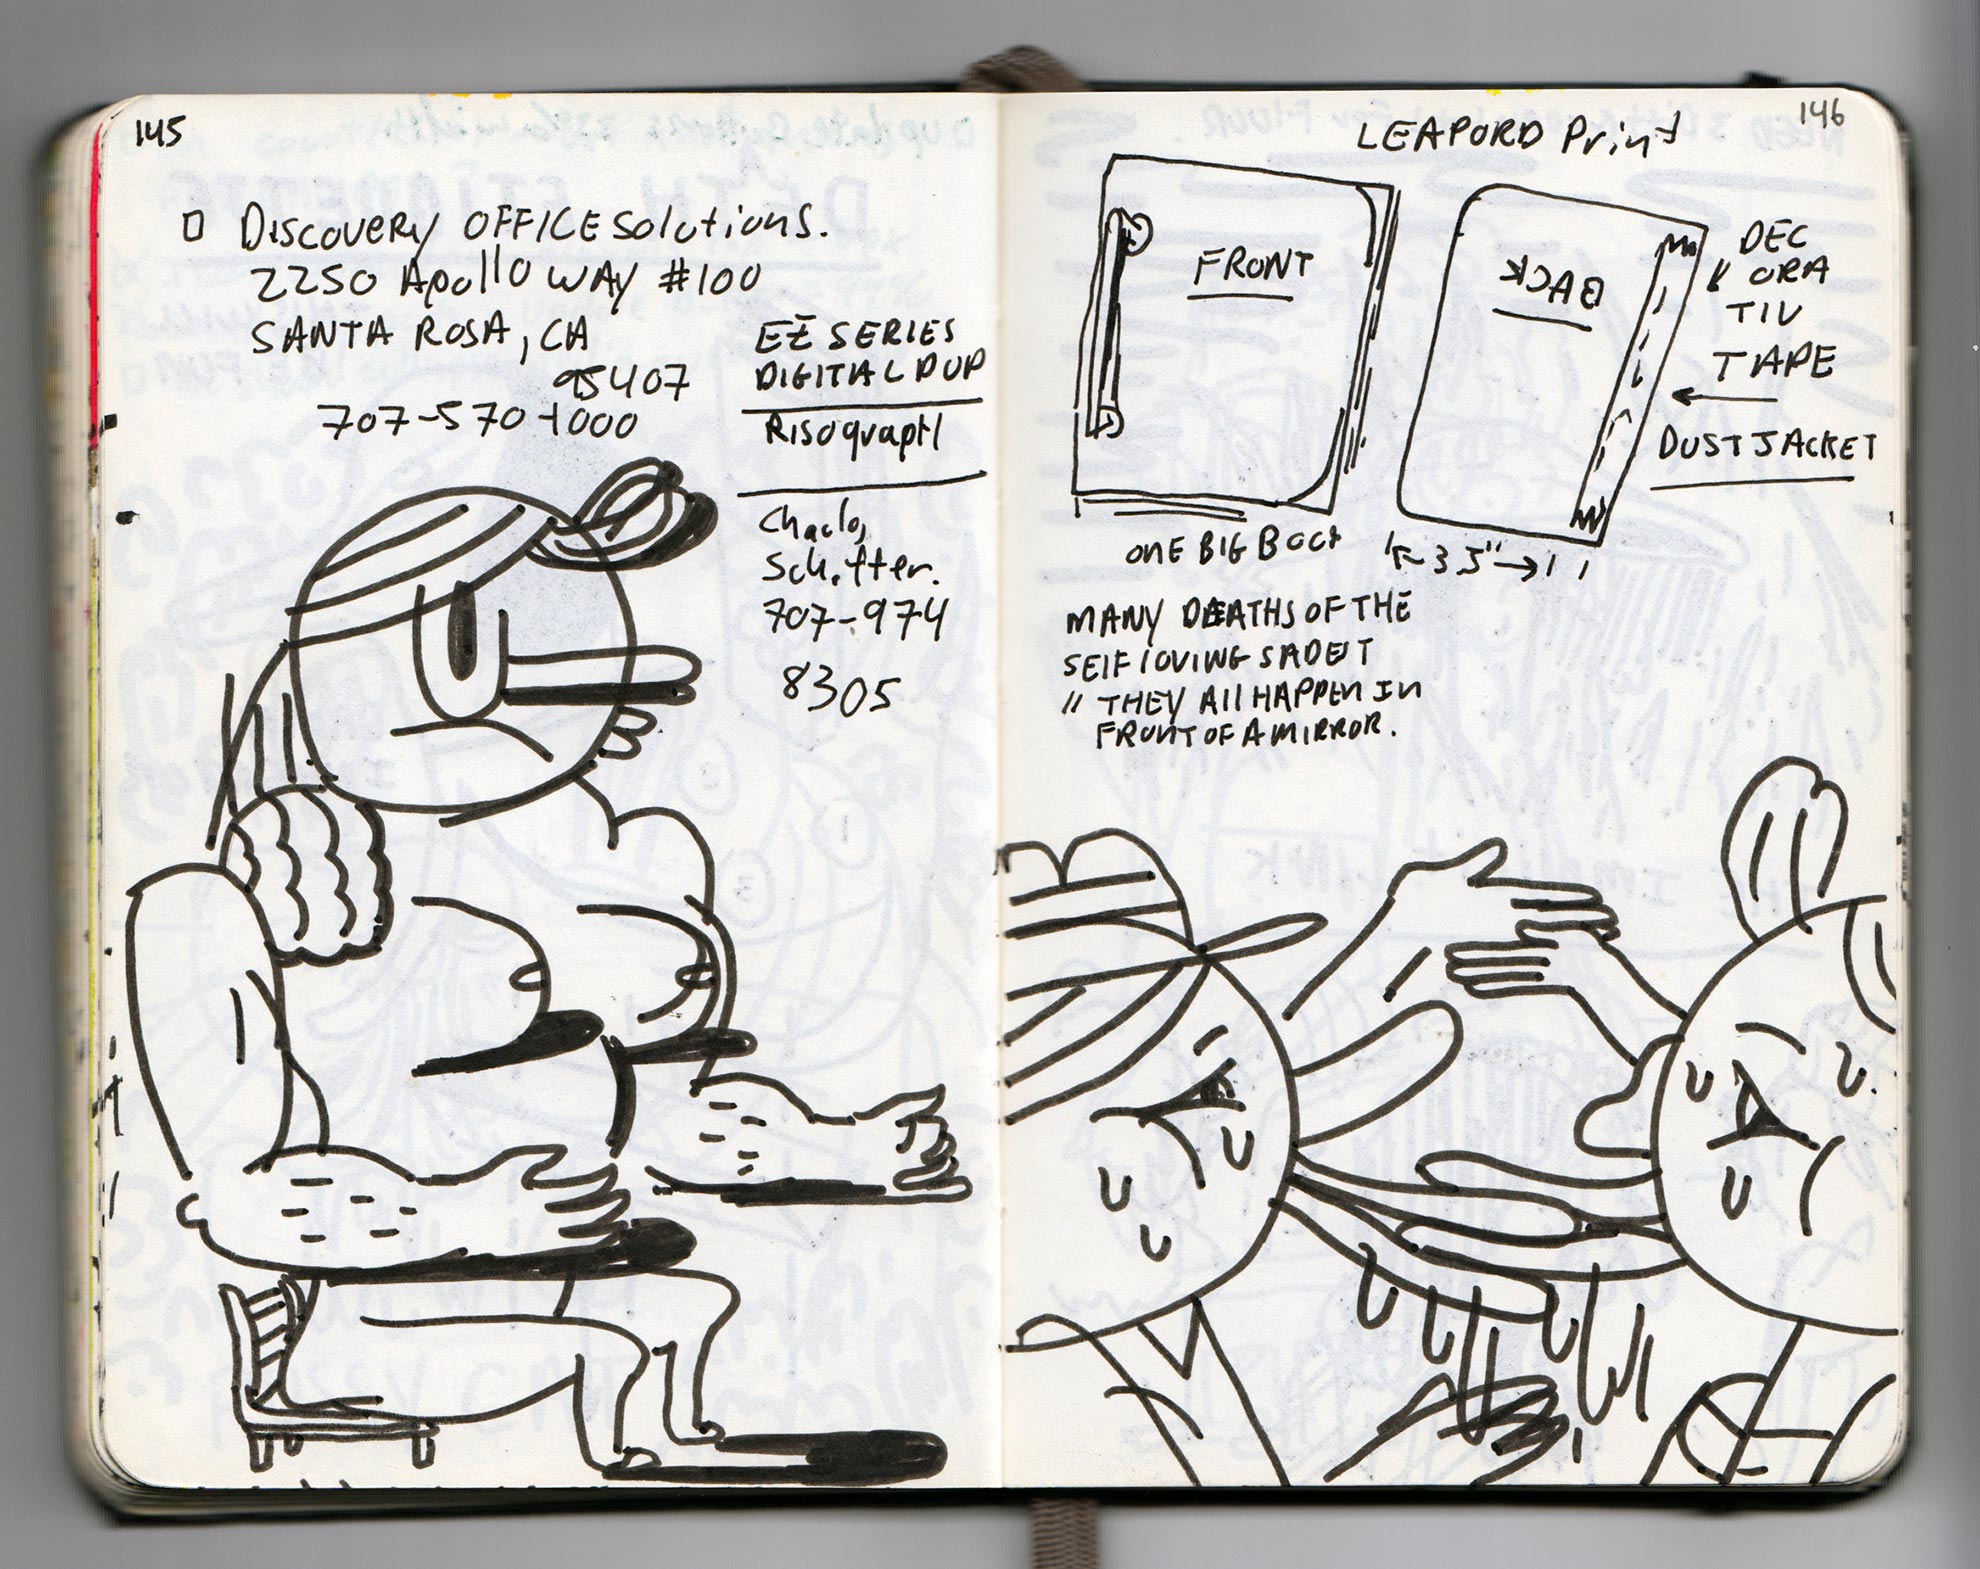 145
□ DISCOVERY OFFICE Solutions.
2250 Apollo WAY #100
SANTA ROSA, CA
95407
707-570-1000
EZ SERIES
DIGITAL DUP
Risograph
707-974
8305
146
LEAPORD Print
FRONT
BACK
DEC
ORA
TIV
TAPE
DUST JACKET
ONE BIG BOOK
3.5"
MANY DEATHS OF THE
SELF LOVING
" THEY All HAPPEN IN
FRONT OF A MIRROR.